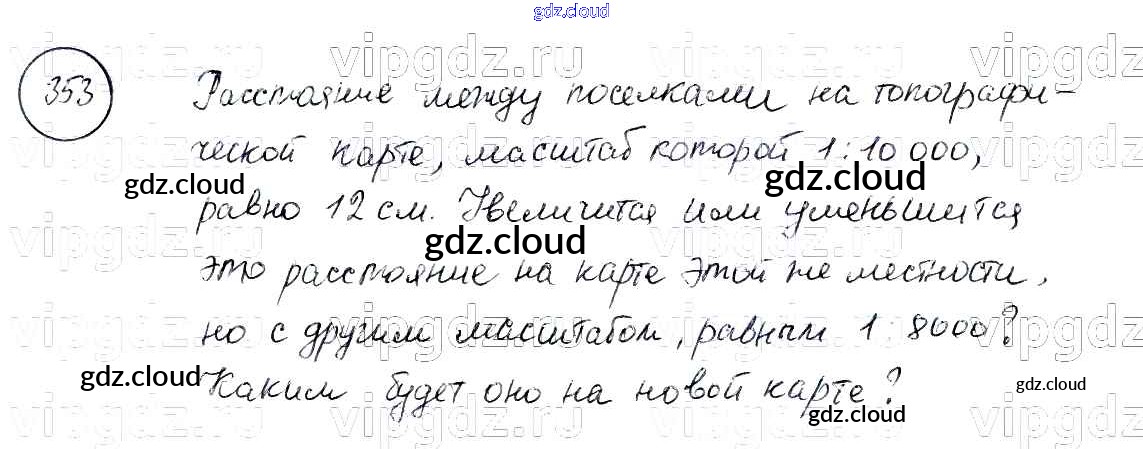 gdz.cloud
vipgdz.ru vipgdz.ru vipgdz.ru vipgdz
353 Расстояние между поселками на топографи-
ческой карте, масштаб которой 1:10 000,
gdz.cloud gdz.cloud
равно 12 см. Увеличится или уменьшится
gdz.cloud
это расстояние на карте этой же местности,
но с другим масштабом, равным 1:8000?
gdz.cloud gdz.cloud
Каким будет оно на новой карте?
gdz.cloud